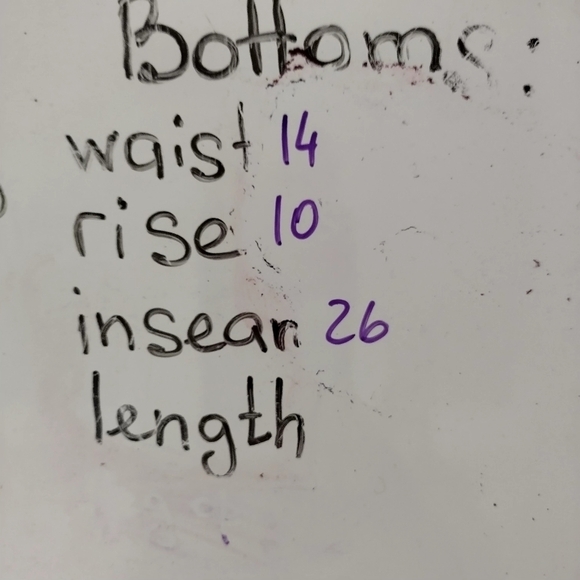 Bottoms:
waist 14
rise 10
insean 26
length